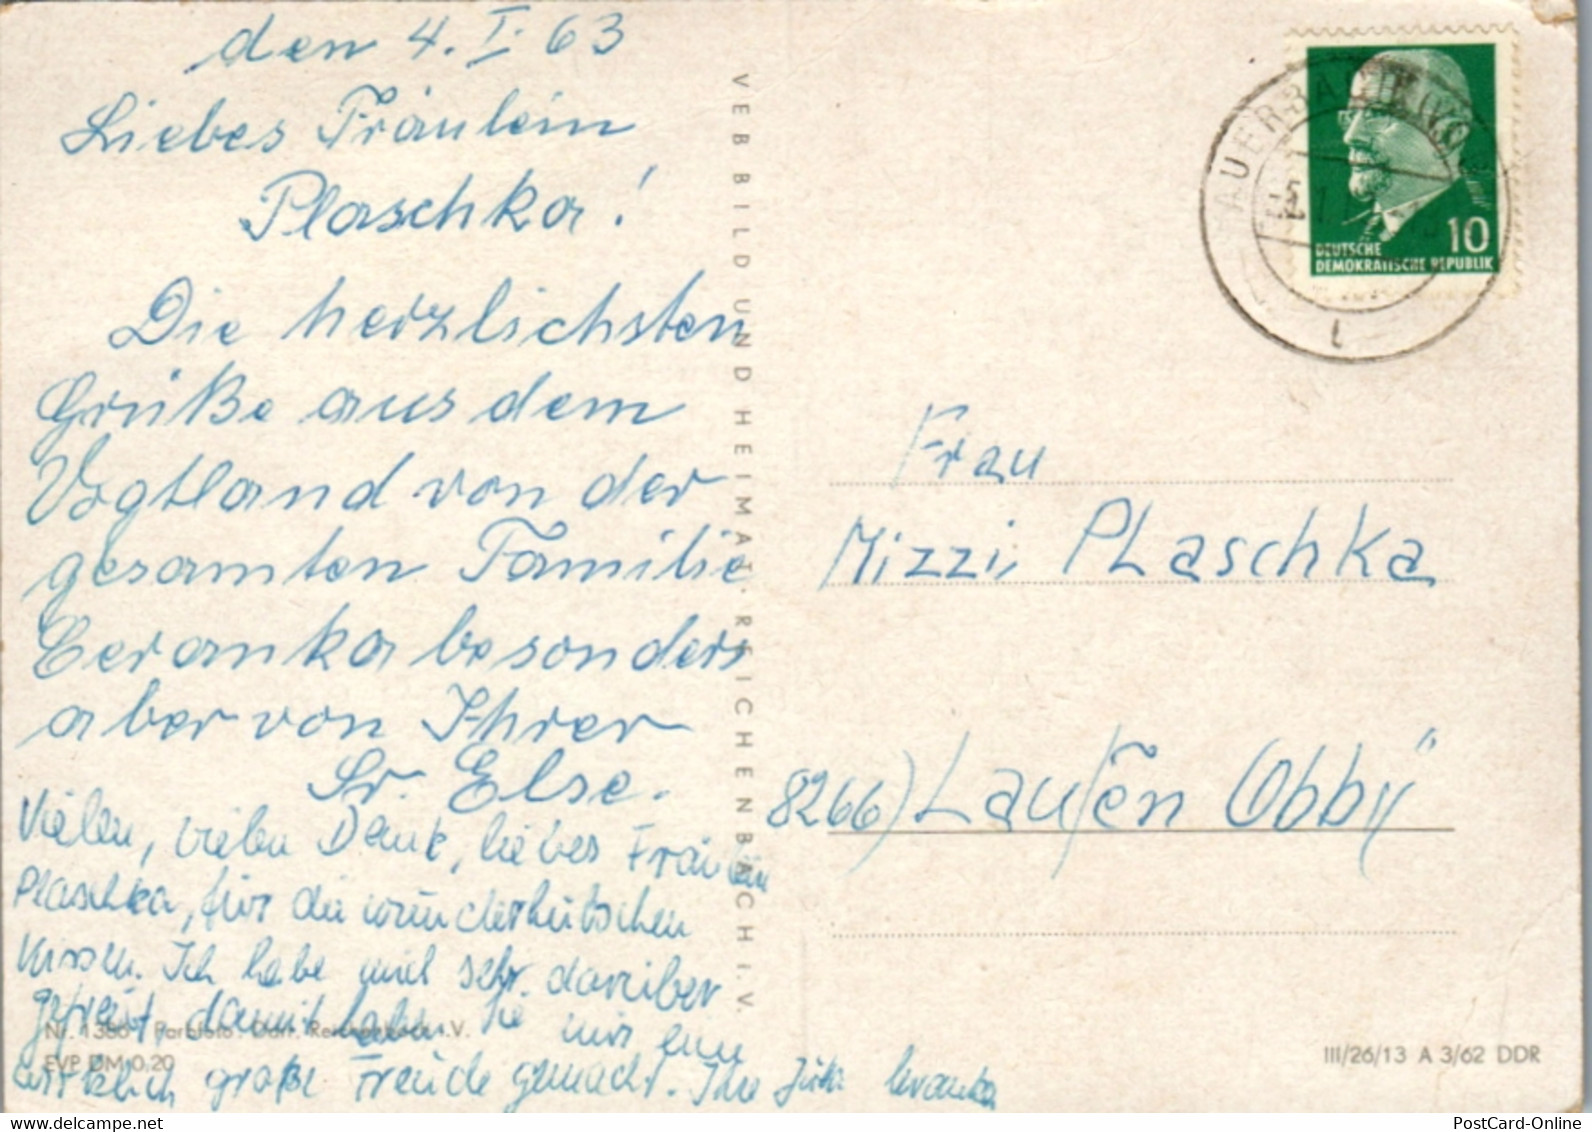 den 4. I. 63
Liebes Fräulein
Plaschka!
Die herzlichsten
Grüße aus dem
Vogtland von der
gesamten Familie
Ceranka besonders
aber von Ihrer
Sr. Else.
Vielen, vielen Dank, liebes Fräulein
Plaschka, für die wunderhübschen
Kissen. Ich habe mich sehr darüber
gefreut, damit haben Sie mir eine
wirklich große Freude gemacht. Ihre Jutta Ceranka
Nr. 1386 Farbfoto: Darr, Reichenbach i. V.
EVP DM 0,20
VEB BILD UND HEIMAT · REICHENBACH I. V.
AUERBACH (VOGTL)
DEUTSCHE
DEMOKRATISCHE REPUBLIK
10
Frau
Mizzi Plaschka
8266) Laufen Obby"
III/26/13 A 3/62 DDR
PostCard-Online